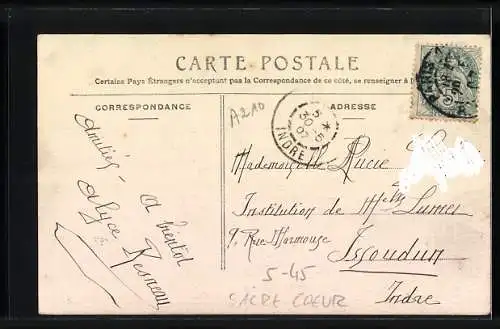 CARTE POSTALE
Certains Pays Étrangers n'acceptant pas la Correspondance de ce côté, se renseigner à l
CORRESPONDANCE
ADRESSE
A210
Amitiés
A bientôt
Alyce
INDRE
Mademoiselle Lucie
Institution de Melles
9, Rue Marmouse
Issoudun
Indre
5-45
SACRE COEUR